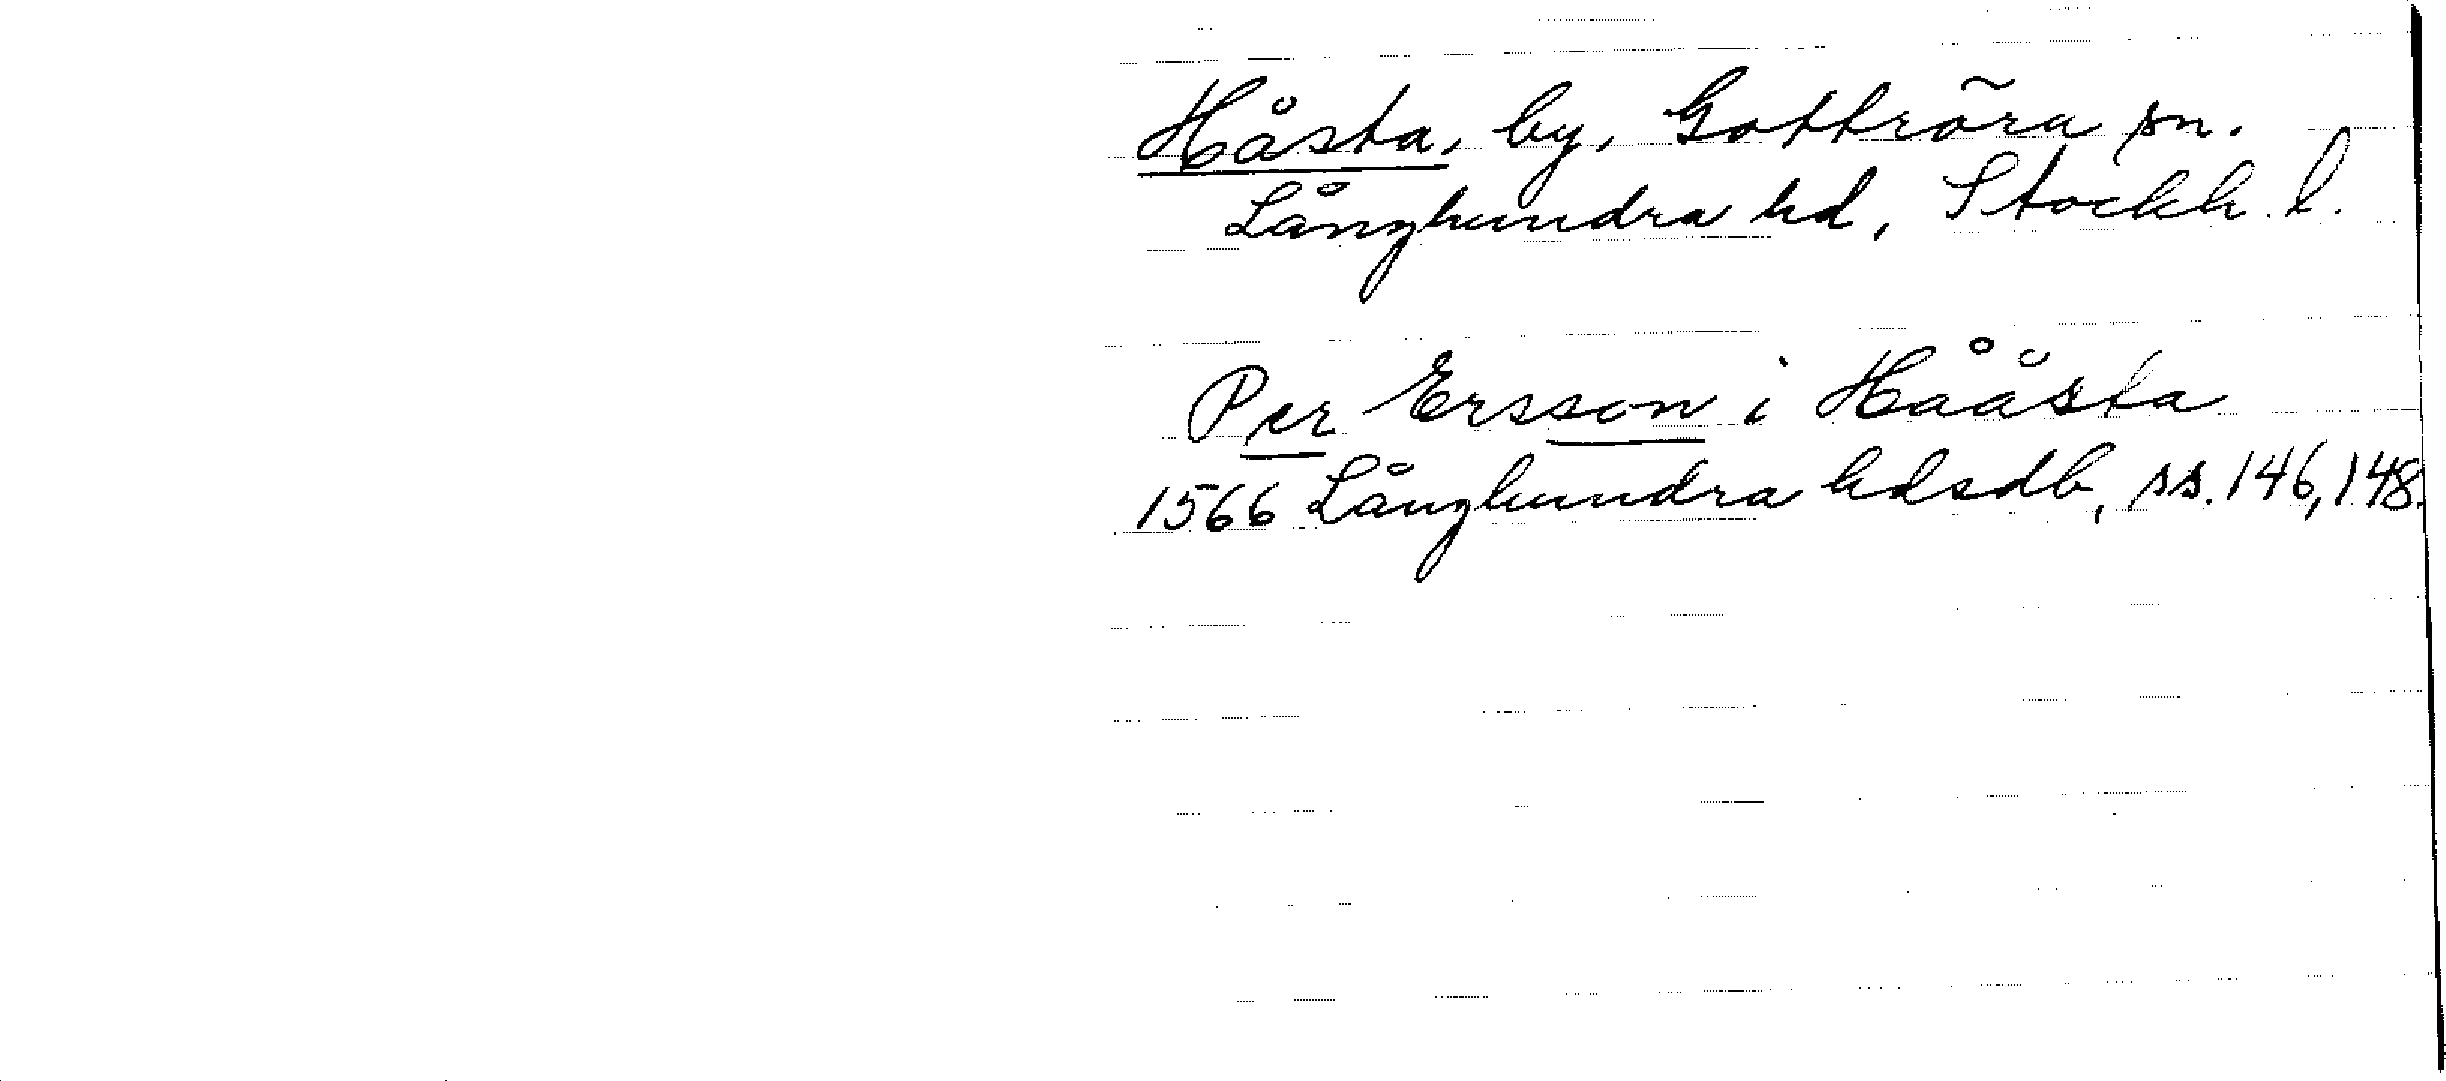 Håsta, by, Gottröra sn.
Långhundra hd, Stockh. l.
Per Ersson i Hååsta
1566 Långhundra hdsdb, ss. 146, 148.